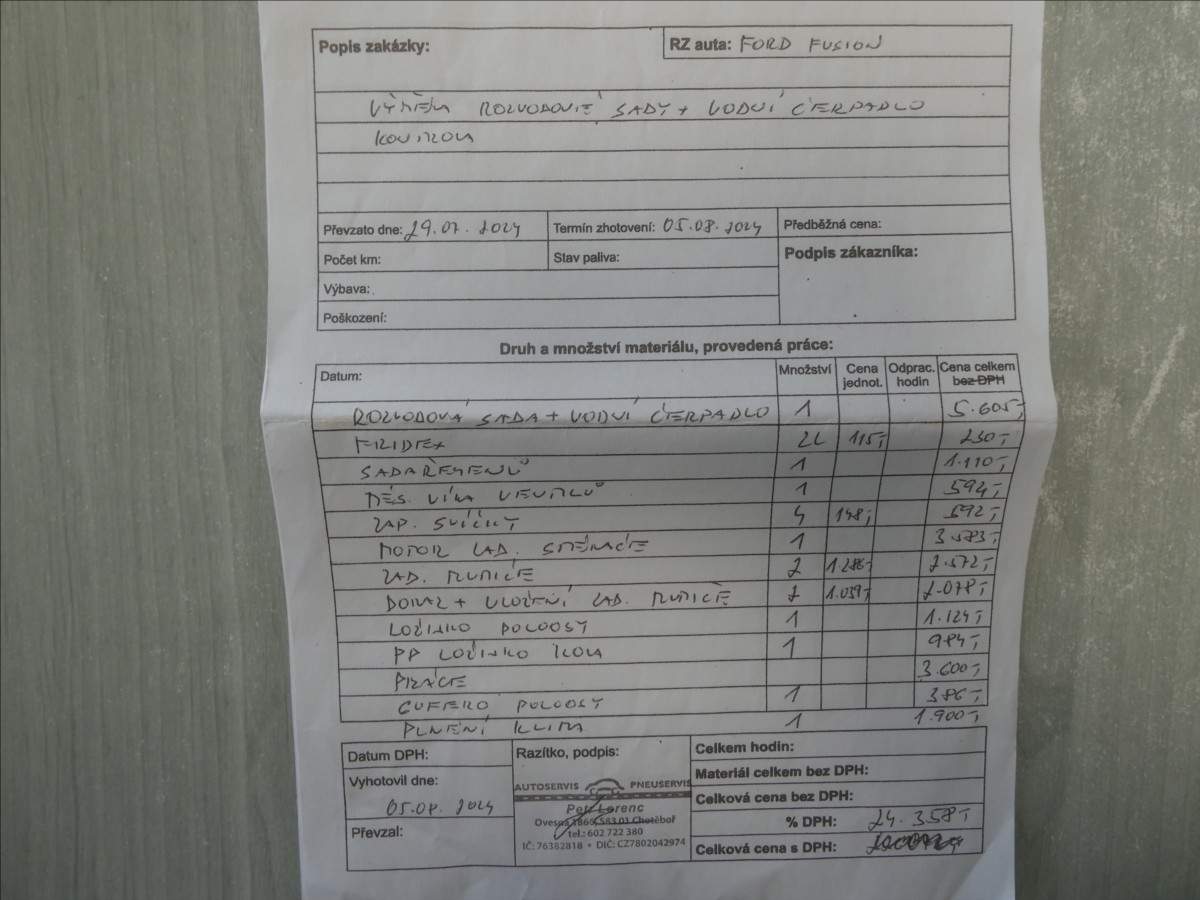 Popis zakázky:
RZ auta: FORD FUSION
VÝMĚNA ROZVODOVÉ SADY + VODNÍ ČERPADLO
Převzato dne: 29.07. 2024 Termín zhotovení: 05.08. 2024 Předběžná cena:
Počet km: Stav paliva: Podpis zákazníka:
Výbava:
Poškození:
Druh a množství materiálu, provedená práce:
Datum: Množství Cena jednot. Odprac. hodin Cena celkem bez DPH
ROZVODOVÁ SADA + VODNÍ ČERPADLO 1 5.605,-
FRIDEX 2L 115,- 230,-
SADA ŘEMENŮ 1 1.110,-
TĚS. VÍKA VENTILŮ 1 594,-
ZAP. SVÍČKY 4 148,- 592,-
MOTOR ZAD. STĚRAČE 1 3.583,-
ZAD. TLUMIČE 2 1.286,- 2.572,-
DORAZ + ULOŽENÍ ZAD. TLUMIČE 2 1.039,- 2.078,-
LOŽISKO POLOOSY 1 1.124,-
PP LOŽISKO KOLA 1 984,-
PRÁCE 3.600,-
GUFERO POLOOSY 1 386,-
PLNĚNÍ KLIMA 1 1.900,-
Datum DPH: Razítko, podpis: Celkem hodin:
Vyhotovil dne: 05.08. 2024
Materiál celkem bez DPH:
AUTOSERVIS PNEUSERVIS
Celková cena bez DPH:
Petr Lorenc
Ovesná 1866, 583 01 Chotěboř
% DPH: 24.358,-
Převzal:
tel.: 602 722 380
IČ: 76382818 • DIČ: CZ7802042974
Celková cena s DPH: